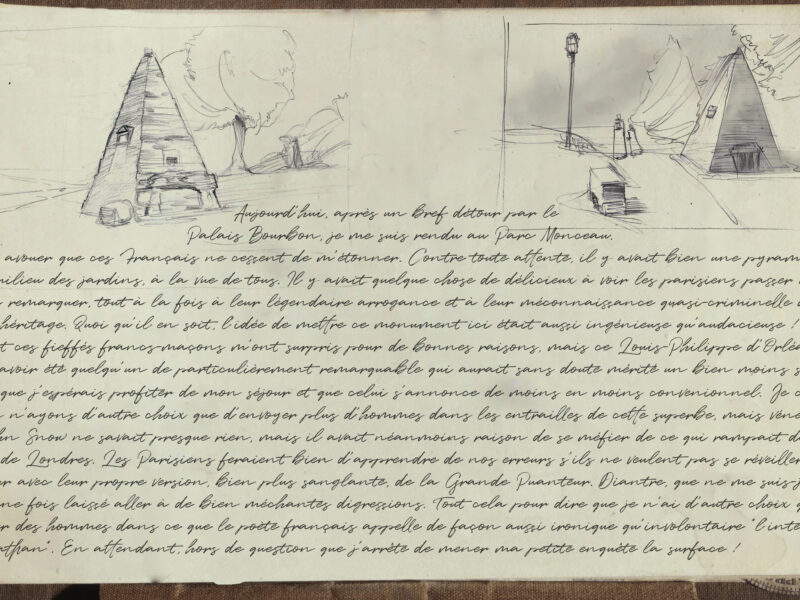 Aujourd'hui, après un bref détour par le
Palais Bourbon, je me suis rendu au Parc Monceau.
avouer que ces Français ne cessent de m'étonner. Contre toute attente, il y avait bien une pyram
milieu des jardins, à la vue de tous. Il y avait quelque chose de délicieux à voir les parisiens passer
remarquer, tout à la fois à leur légendaire arrogance et à leur méconnaissance quasi-criminelle
héritage. Quoi qu'il en soit, l'idée de mettre ce monument ici était aussi ingénieuse qu'audacieuse !
t ces fieffés francs-maçons m'ont surpris pour de bonnes raisons, mais ce Louis-Philippe d'Orléa
avoir été quelqu'un de particulièrement remarquable qui aurait sans doute mérité un bien moins s
que j'espérais profiter de mon séjour et que celui s'annonce de moins en moins convenionnel. Je c
n'ayons d'autre choix que d'envoyer plus d'hommes dans les entrailles de cette superbe, mais véné
hn Snow ne savait presque rien, mais il avait néanmoins raison de se méfier de ce qui rampait d
de Londres. Les Parisiens feraient bien d'apprendre de nos erreurs s'ils ne veulent pas se réveiller
r avec leur propre version, bien plus sanglante, de la Grande Puanteur. Diantre, que ne me suis-j
ne fois laissé aller à de bien méchantes digressions. Tout cela pour dire que je n'ai d'autre choix q
r des hommes dans ce que le poète français appelle de façon aussi ironique qu'involontaire "l'inte
athan". En attendant, hors de question que j'arrête de mener ma petite enquête la surface !